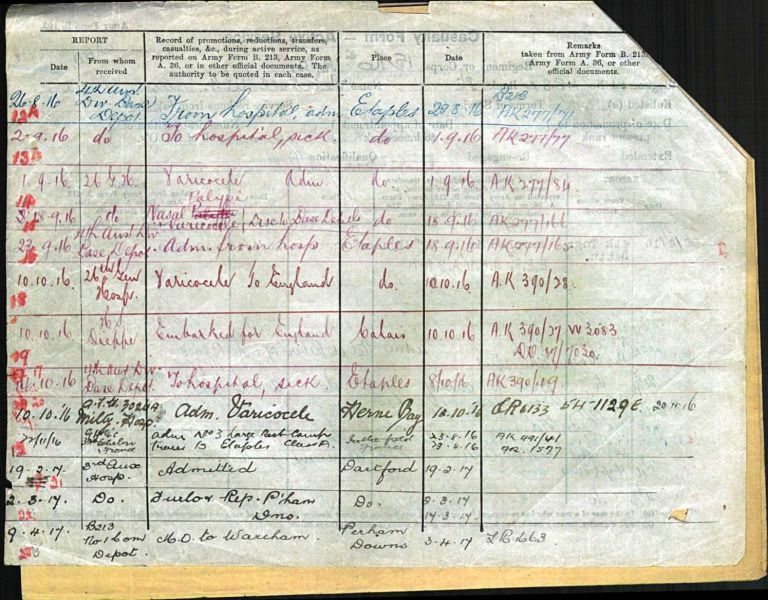 REPORT
Record of promotions, reductions, transfers,
casualties, &c., during active service, as
reported on Army Form B. 213, Army Form
A. 36, or in other official documents. The
authority to be quoted in each case.
Place
Date
Remarks
taken from Army Form B. 213,
Army Form A. 36, or other
official documents.
Date
From whom
received
26.8.16 4th Aust Div Base Depot From hospital, adm Etaples 23.8.16 B213 AK277/71
12A
2.9.16 do To hospital, sick. do 1.9.16 AK277/77
13A
1.9.16. 26 G.H. Varicocele Adm do 1.9.16. AK277/84
14
18.9.16 do Nasal Polypi Varicocele / Disch Base Depot do 18.9.16 AK277/166
15
23.9.16 4th Aust Div Base Depot Adm. from hosp Etaples 18.9.16 AK277/165
16
10.10.16 26th Gen Hosp. Varicocele To England do. 10.10.16. A.K 390/28.
18
10.10.16 H.S. Dieppe Embarked for England Calais 10.10.16 A.K 390/27 W3083
19
.10.16 4th Aust Div Base Depot. To hospital, sick. Etaples 8/10/16 AK390/19
17
10.10.16 Milty. Hosp. Adm. Varicocele Herne Bay 10.10.16 6133 54-1129E. 20.11.16
20
/11/16 France adm No 3 Large Rest Camp France 23.8.16 AK491/41
trans to Etaples Class A. AR.1577
19.2.17 3rd Aux Hosp. Admitted Dartford 19.2.17
21
2.3.17. Do. Furlo & Rep. P'ham Dno. Do. 2.3.17
22
17.3.17
9.4.17. B213 No 1 Com Depot. M.D. to Wareham. Perham Downs 3.4.17 663
23